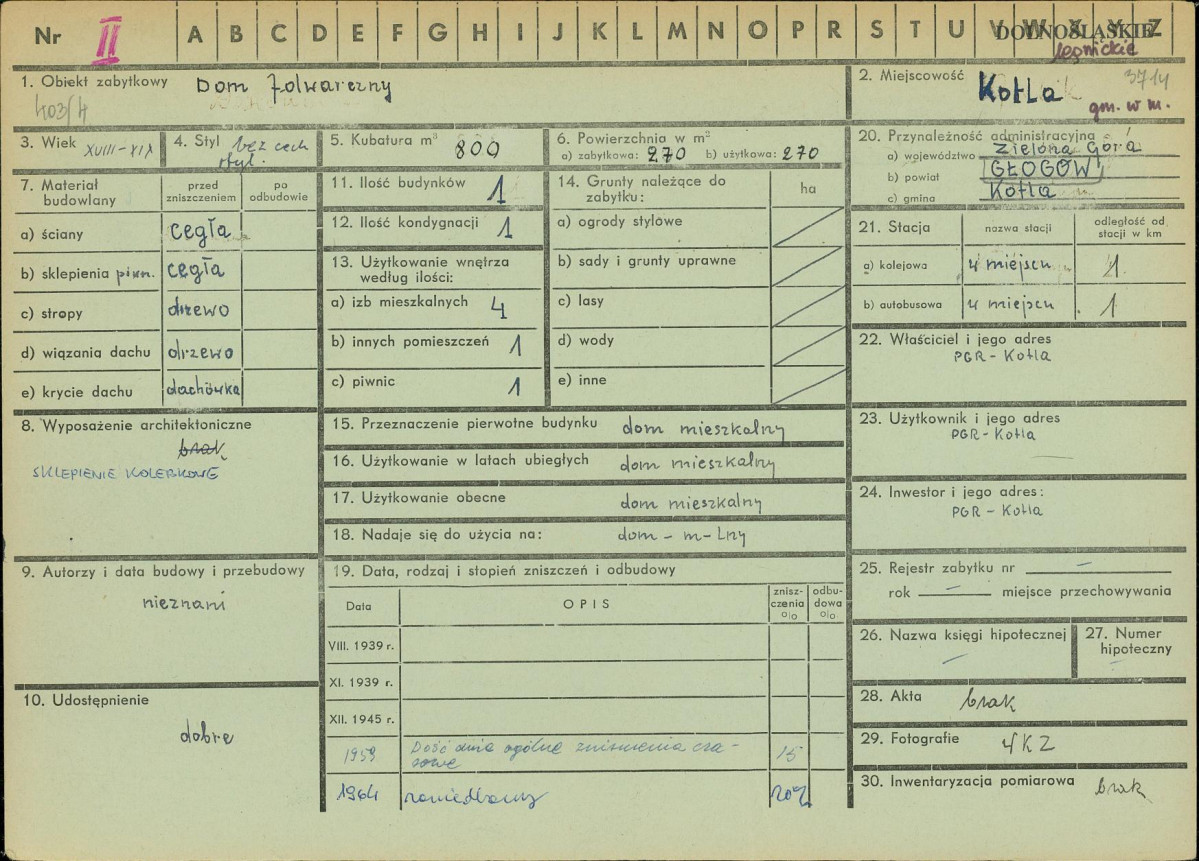 Nr II A B C D E F G H I J K L M N O P R S T U V W X Y Z DOLNOŚLĄSKIE
legnickie
1. Obiekt zabytkowy Dom folwarczny
403/4
2. Miejscowość Kotla 3714
gm. w m.
3. Wiek XVIII-XIX
4. Styl bez cech
styl.
5. Kubatura m³ 800
6. Powierzchnia w m²
a) zabytkowa: 270 b) użytkowa: 270
20. Przynależność administracyjna
a) województwo Zielona Góra
b) powiat GŁOGÓW
c) gmina Kotla
7. Materiał budowlany
przed zniszczeniem
po odbudowie
a) ściany cegła
b) sklepienia piwn. cegła
c) stropy drzewo
d) wiązania dachu drzewo
e) krycie dachu dachówka
11. Ilość budynków 1
12. Ilość kondygnacji 1
13. Użytkowanie wnętrza
według ilości:
a) izb mieszkalnych 4
b) innych pomieszczeń 1
c) piwnic 1
14. Grunty należące do
zabytku:
ha
a) ogrody stylowe
b) sady i grunty uprawne
c) lasy
d) wody
e) inne
21. Stacja
nazwa stacji
odległość od
stacji w km
a) kolejowa w miejscu 1
b) autobusowa w miejscu 1
22. Właściciel i jego adres
PGR - Kotla
23. Użytkownik i jego adres
PGR - Kotla
24. Inwestor i jego adres:
PGR - Kotla
8. Wyposażenie architektoniczne
brak
SKLEPIENIE KOLEBKOWE
15. Przeznaczenie pierwotne budynku dom mieszkalny
16. Użytkowanie w latach ubiegłych dom mieszkalny
17. Użytkowanie obecne dom mieszkalny
18. Nadaje się do użycia na: dom - m - lny
9. Autorzy i data budowy i przebudowy
nieznani
10. Udostępnienie
dobre
19. Data, rodzaj i stopień zniszczeń i odbudowy
Data
OPIS
znisz-
czenia
%
odbu-
dowa
%
VIII. 1939 r.
XI. 1939 r.
XII. 1945 r.
1959 Dość duże ogólne zniszczenia cza-
sowe 15
1964 zaniedbany 20%
25. Rejestr zabytku nr -
rok - miejsce przechowywania
26. Nazwa księgi hipotecznej
-
27. Numer
hipoteczny
-
28. Akta brak
29. Fotografie WKZ
30. Inwentaryzacja pomiarowa brak